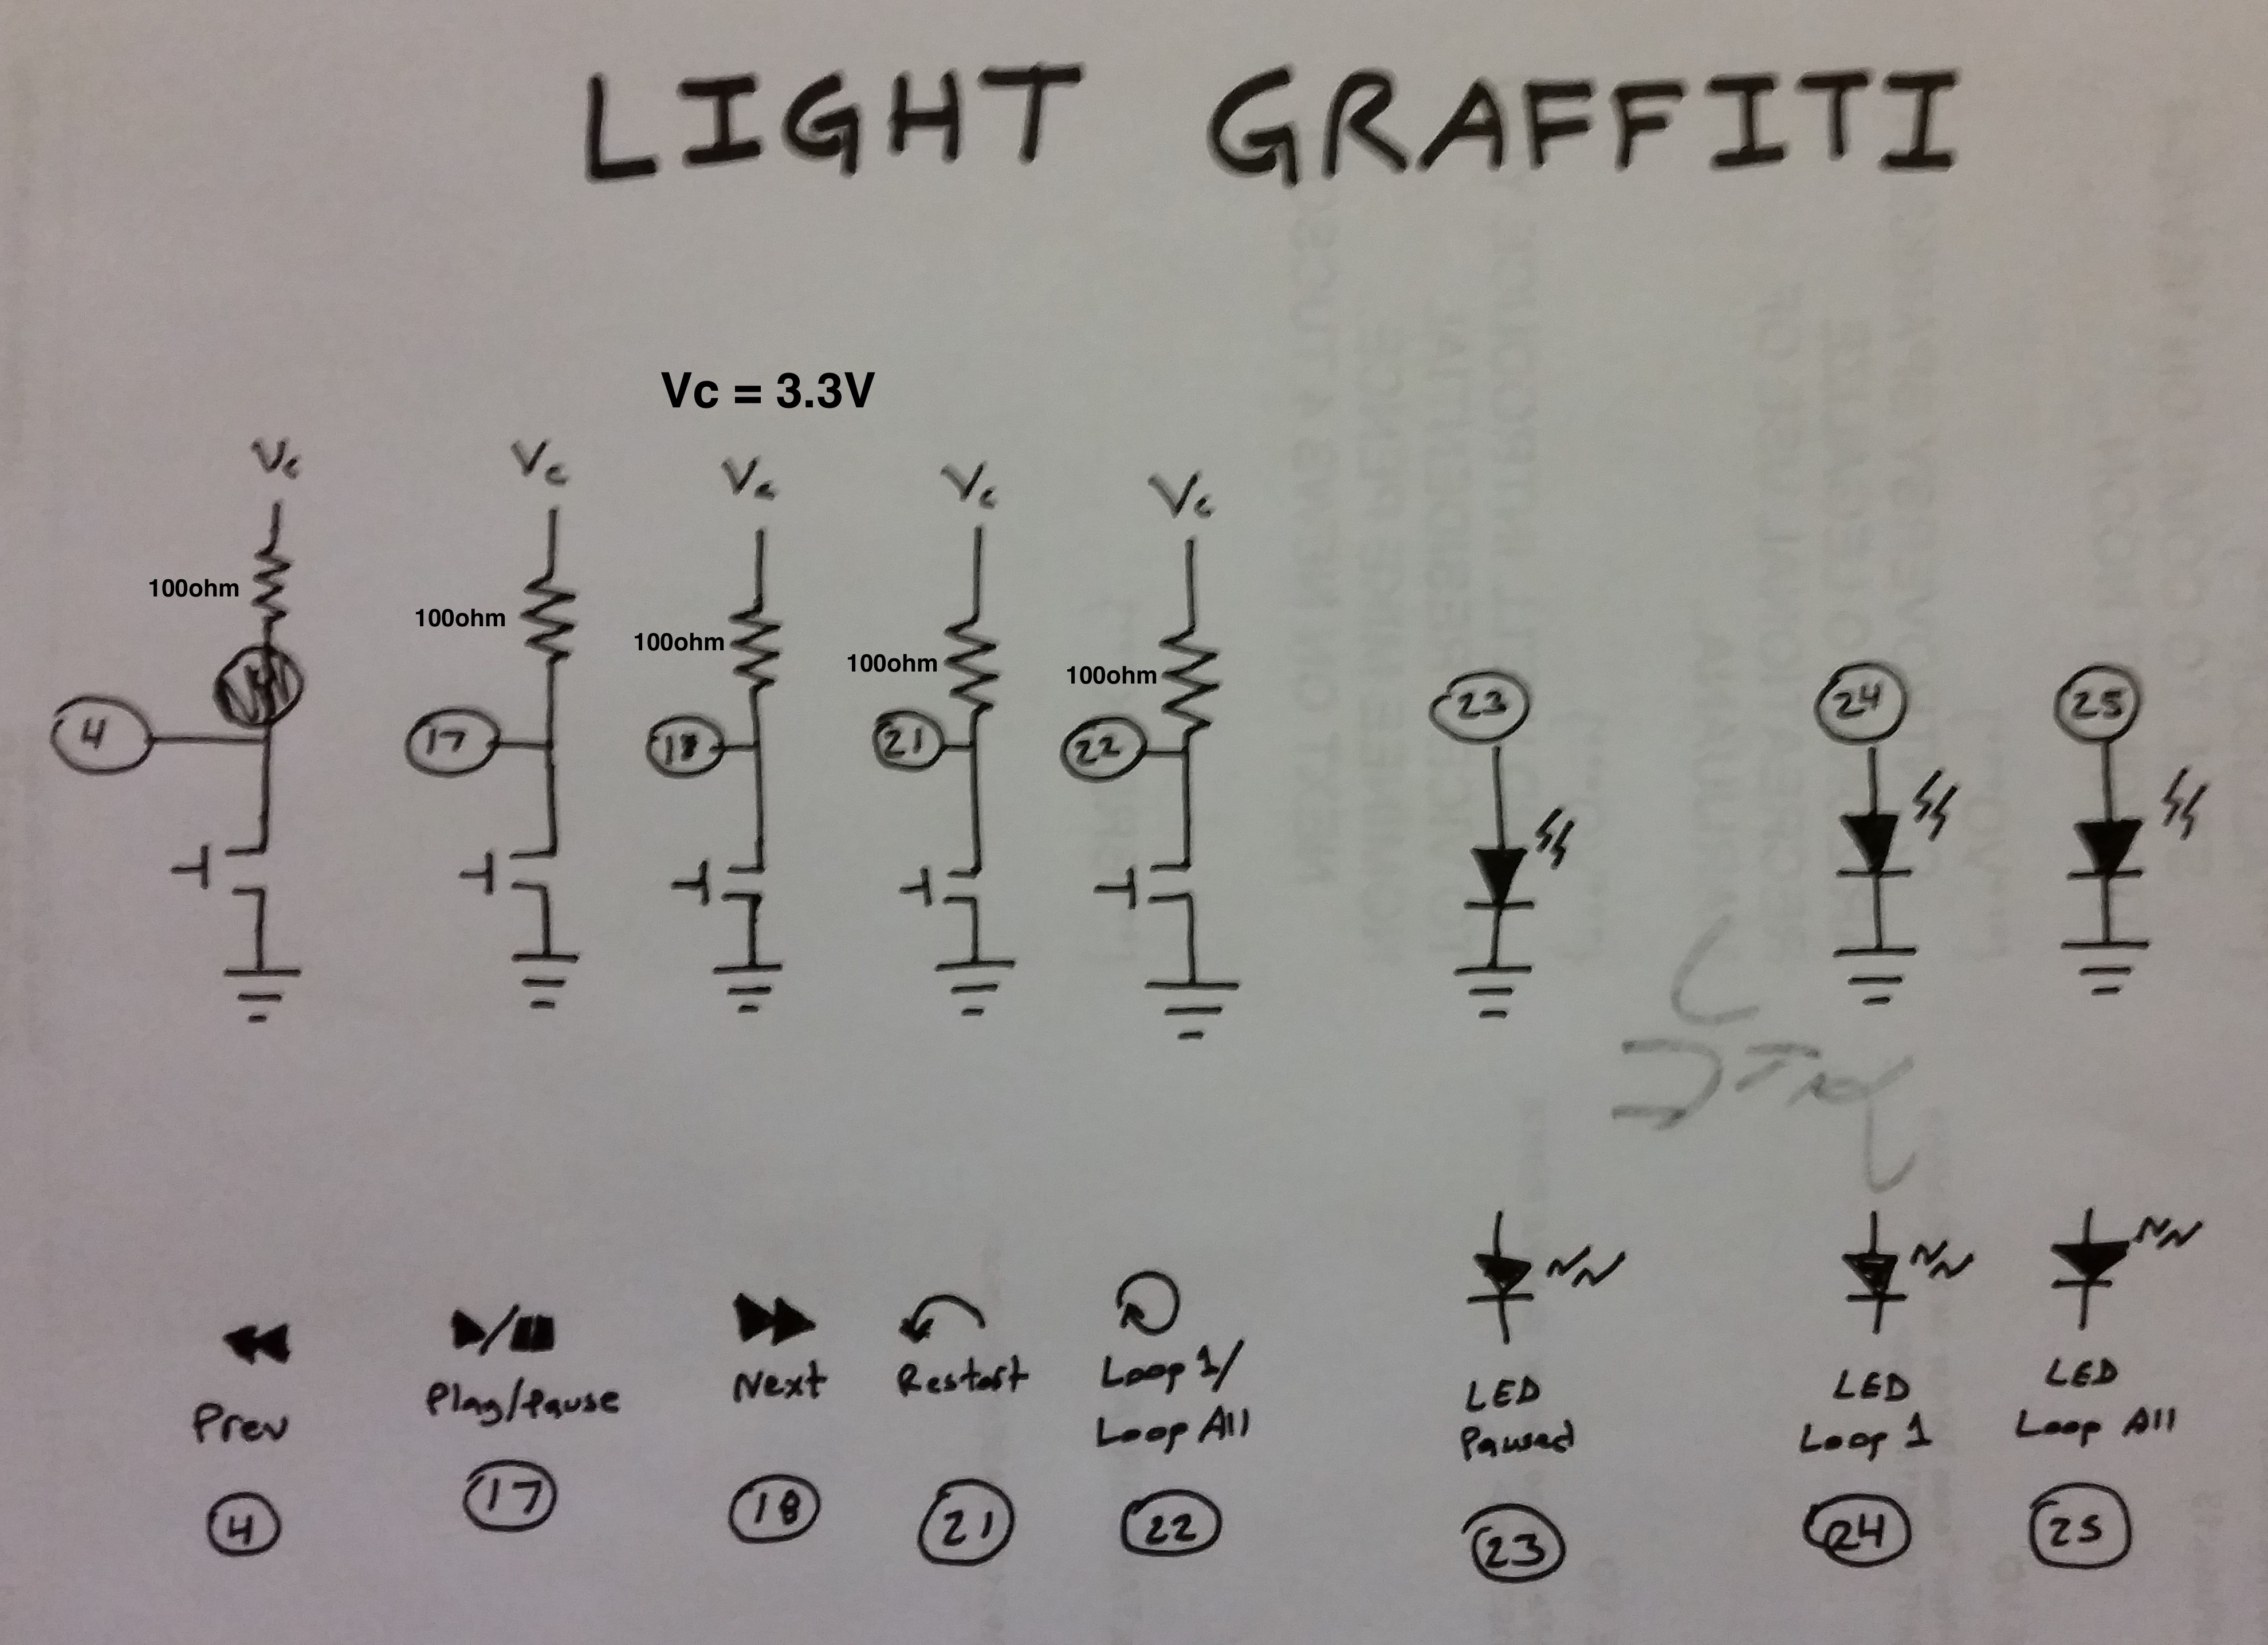 LIGHT GRAFFITI
Vc = 3.3V
Vc Vc Vc Vc Vc
100ohm 100ohm 100ohm 100ohm 100ohm
4 17 18 21 22 23 24 25
Prev
Play/Pause
Next
Restart
Loop 1/
Loop All
LED
Paused
LED
Loop 1
LED
Loop All
4 17 18 21 22 23 24 25